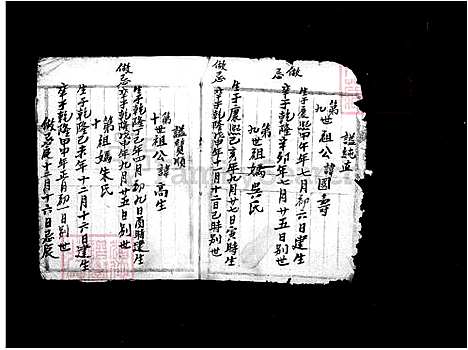 謚純直
第九世祖公諱國壽
生于康熙甲午年七月初六日建生
卒于乾隆辛卯年七月廿五日別世
做忌
第九世祖媽吳氏
生于康熙己亥年九月廿七日寅時生
卒于乾隆戊申年十一月十二日巳時別世
做忌
謚賢順
第十世祖公諱高生
生于乾隆丁巳年四月初九日酉時建生
卒于乾隆甲午年八月廿五日別世
做忌
第十祖媽朱氏
生于乾隆己未年十二月十六日建生
卒于乾隆甲申年正月初日別世
做忌庚十二月十六日忌辰